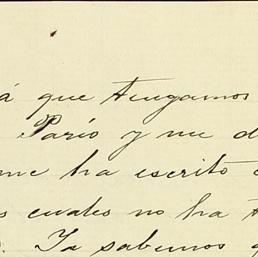 á que tengamos
Parío y me d
me ha escrito
s cuales no ha
Ya sabemos q